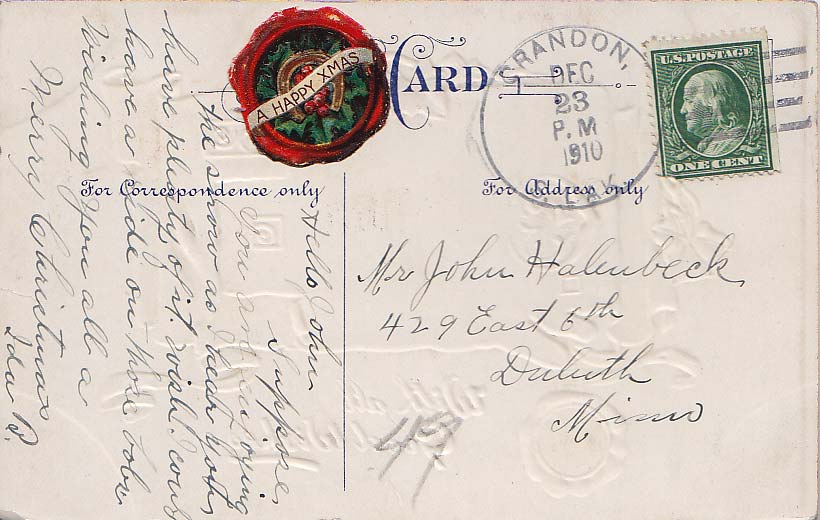 CARD
A HAPPY XMAS
BRANDON,
DEC
23
P.M
1910
U.S. POSTAGE
ONE CENT
For Correspondence only
For Address only
Hello John
Suppose
you are enjoying
the snow as I hear you
have plenty of it. wish I could
have a ride on those bobs
Wishing you all a
Merry Christmas
Ida B.
Mr John Halenbeck
429 East 6th
Duluth
Minn